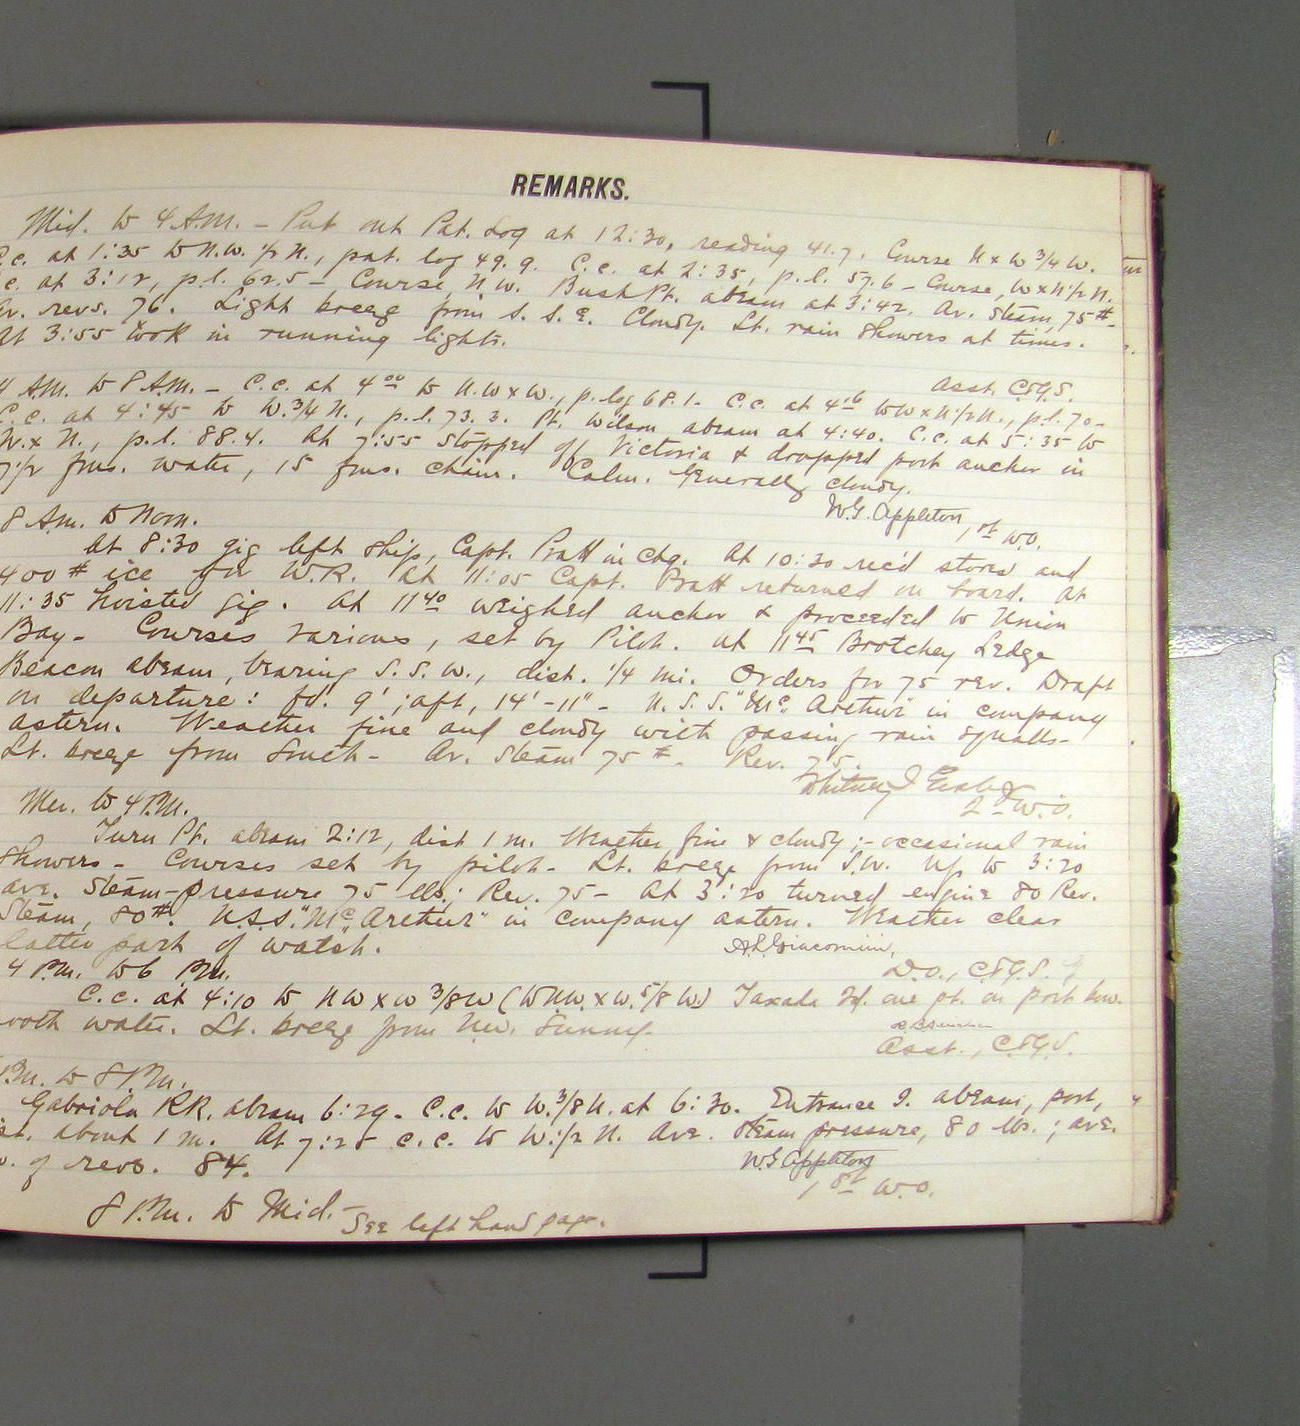 REMARKS.
Mid. to 4 A.M. – Put out Pat. Log at 12:30, reading 41.7. Course N x W 3/4 W.
C.c. at 1:35 to N.W. 1/2 N., pat. log 49.9. C.c. at 2:35, p.l. 57.6 – Course, W x N 1/2 N.
c. at 3:12, p.l. 62.5 – Course, N.W. Bush Pt. abeam at 3:42. Av. Steam, 75# –
Av. revs. 76. Light breeze from S.S.E. Cloudy. Lt. rain showers at times.
At 3:55 took in running lights.
Asst. C.&G.S.
4 A.M. to 8 A.M. – C.c. at 4 00 to N.W x W., p. log 68.1 – C.c. at 4 16 to W x N 1/2 N., p.l. 70 –
C.c. at 4:45 to W. 3/4 N., p.l. 73.3. Pt. Wilson abeam at 4:40. C.c. at 5:35 to
W. x N., p.l. 88.4. At 7:55 stopped off Victoria & dropped port anchor in
7 1/2 fms. water, 15 fms. chain. Calm. Generally cloudy.
W.G. Appleton, 1st W.O.
8 A.M. to Noon.
At 8:30 gig left ship, Capt. Pratt in chg. At 10:30 rec'd stores and
400 # ice for W.R. At 11:05 Capt. Pratt returned on board. At
11:35 hoisted gig. At 11 40 weighed anchor & proceeded to Union
Bay – Courses various, set by Pilot. At 11 45 Brotchey Ledge
Beacon abeam, bearing S.S.W., dist. 1/4 mi. Orders for 75 rev. Draft
on departure: fd. 9' ; aft, 14'-11" – U.S.S. "Mc. Arthur" in company
astern. Weather fine and cloudy with passing rain squalls –
Lt. breeze from South – Av. Steam 75 # – Rev. 75.
2d W.O.
Mer. to 4 P.M.
Turn Pt. abeam 2:12, dist 1 m. Weather fine & cloudy ; – occasional rain
showers – Courses set by pilot – Lt. breeze from S.W. Up to 3:20
ave. steam-pressure 75 lbs; Rev. 75 – At 3:20 turned engine 80 Rev.
Steam, 80#. U.S.S. "Mc. Arthur" in company astern. Weather clear
latter part of watch.
A.L. Giacomini,
D.O., C.&G.S.
4 P.M. to 6 P.M.
C.c. at 4:10 to NW x W 3/8 W (to NW. x W. 5/8 W) Texada Id. one pt. on port bow.
ooth water. Lt. breeze from N.W. Sunny –
Asst., C.&G.S.
P.M. to 8 P.M.
Gabriola Rk. abeam 6:29 – C.c. to W. 3/8 N. at 6:30. Entrance I. abeam, port,
st. about 1 m. At 7:25 c.c. to W. 1/2 N. Ave. steam pressure, 80 lbs. ; ave.
o. of revs. 84.
W.G. Appleton
1st W.O.
8 P.M. to Mid. – See left hand page.